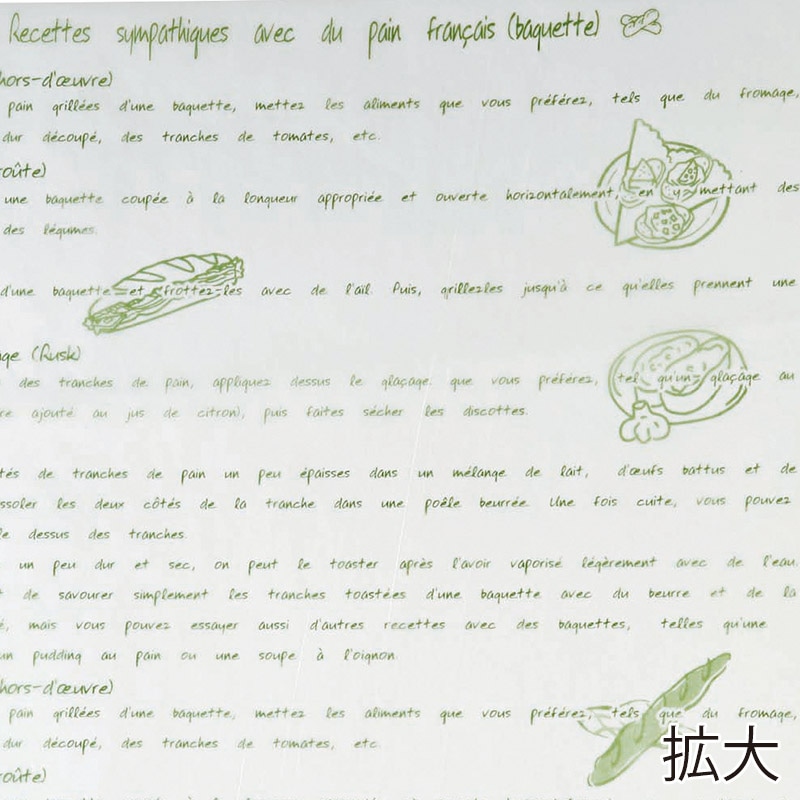 Recettes sympathiques avec du pain français (baguette)
hors-d'œuvre)
pain grillées d'une baguette, mettez les aliments que vous préférez, tels que du fromage,
dur découpé, des tranches de tomates, etc.
oûte)
une baguette coupée à la longueur appropriée et ouverte horizontalement, en y mettant des
des légumes.
d'une baguette et frottez-les avec de l'ail. Puis, grillezles jusqu'à ce qu'elles prennent une
ge (Rusk)
des tranches de pain, appliquez dessus le glaçage. que vous préférez, tel qu'un glaçage au
re ajouté au jus de citron), puis faites sécher les discottes.
tés de tranches de pain un peu épaisses dans un mélange de lait, d'œufs battus et de
ssoler les deux côtés de la tranche dans une poêle beurrée. Une fois cuite, vous pouvez
le dessus des tranches.
un peu dur et sec, on peut le toaster après l'avoir vaporisé légèrement avec de l'eau.
t de savourer simplement les tranches toastées d'une baguette avec du beurre et de la
é, mais vous pouvez essayer aussi d'autres recettes avec des baguettes, telles qu'une
un pudding au pain ou une soupe à l'oignon.
hors-d'œuvre)
pain grillées d'une baguette, mettez les aliments que vous préférez, tels que du fromage,
dur découpé, des tranches de tomates, etc.
oûte)
拡大